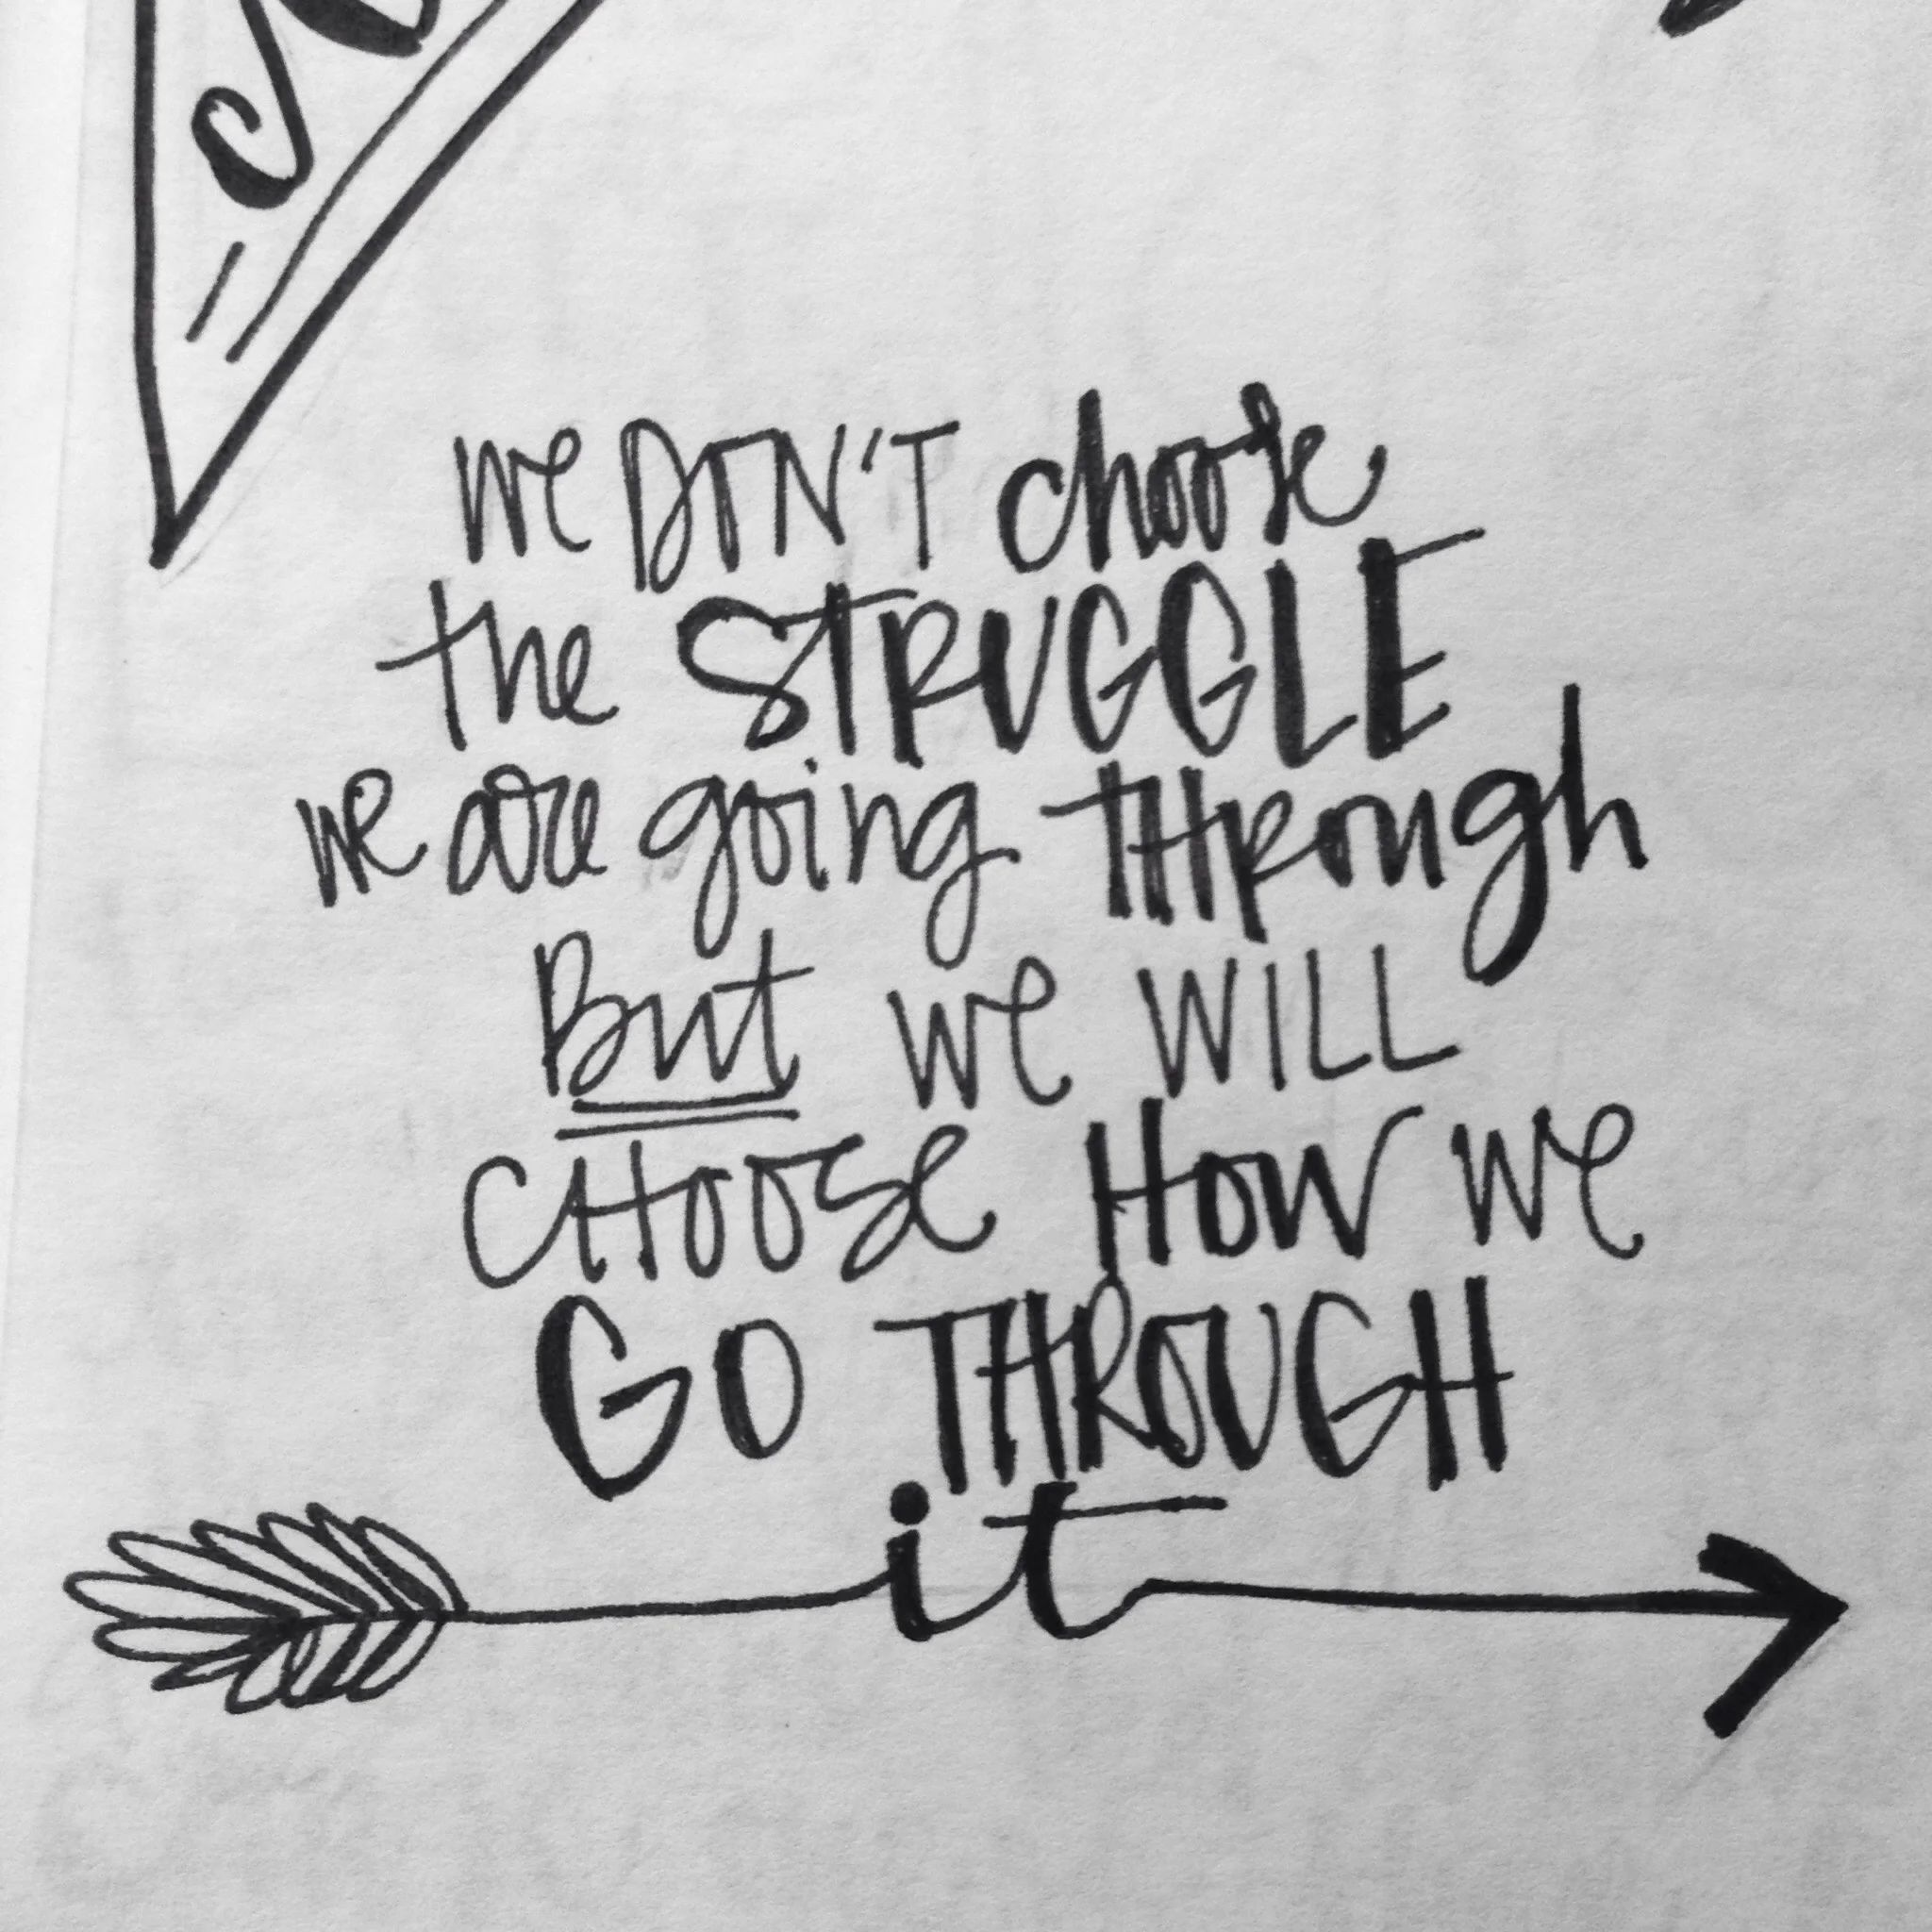 we DON'T choose
the STRUGGLE
we are going THRough
But we WILL
CHOOSe How we
GO THROUGH
it